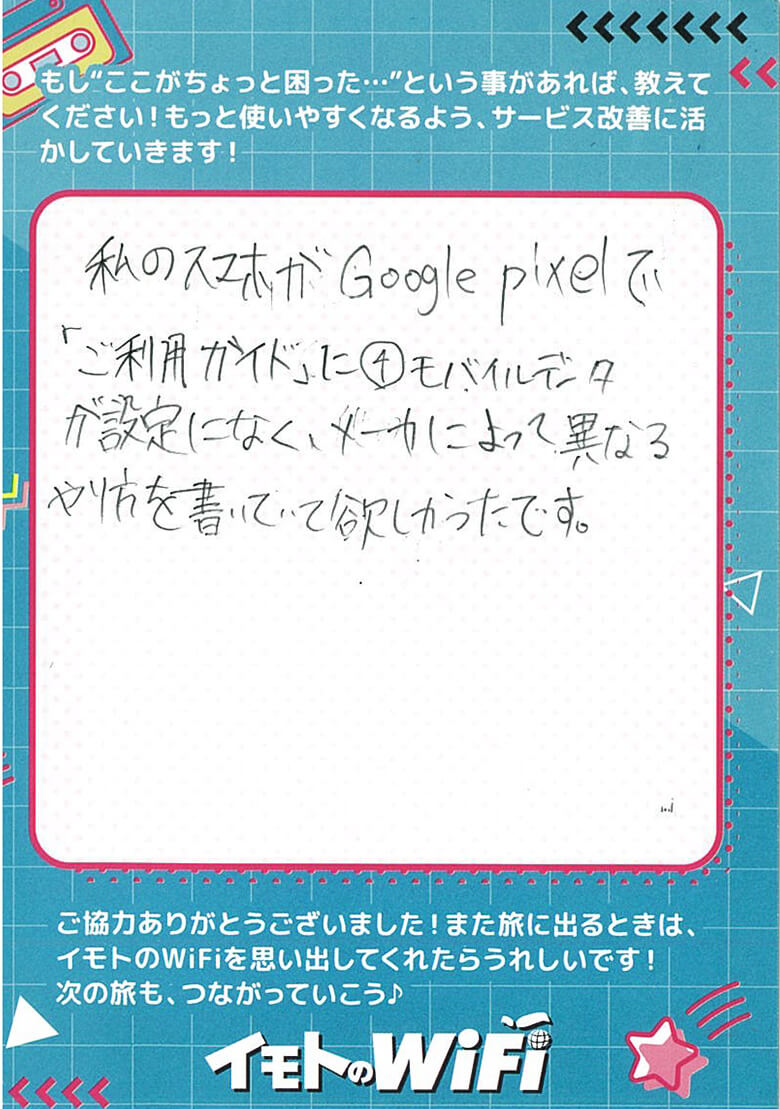 もし“ここがちょっと困った…”という事があれば、教えて
ください！もっと使いやすくなるよう、サービス改善に活
かしていきます！
私のスマホが Google pixelで
「ご利用ガイド」に④モバイルデータ
が設定になく、メーカによって異なる
やり方を書いていて欲しかったです。
ご協力ありがとうございました！また旅に出るときは、
イモトのWiFiを思い出してくれたらうれしいです！
次の旅も、つながっていこう♪
イモトのWiFi